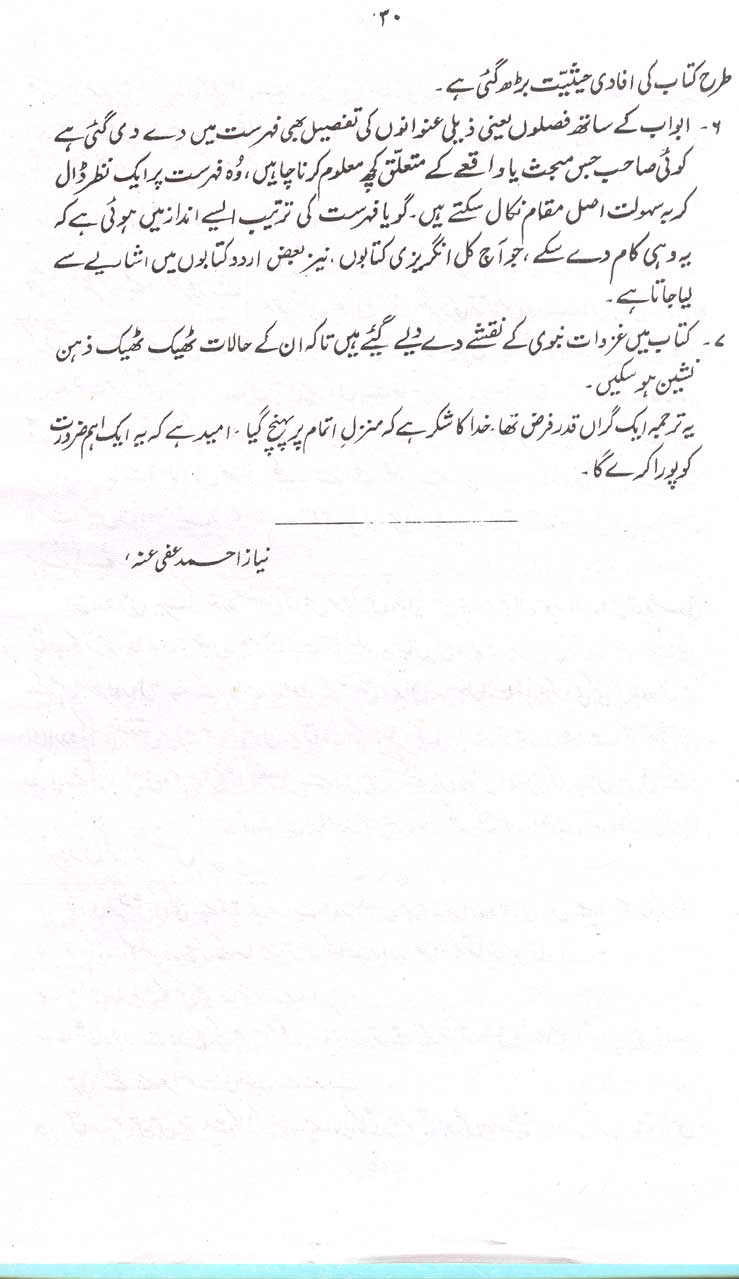 ۳۰
طرح کتاب کی افادی حیثیّت بڑھ گئی ہے۔
۶۔ ابواب کے ساتھ فصلوں یعنی ذیلی عنوانوں کی تفصیل بھی فہرست میں دے دی گئی ہے
کوئی صاحب جس مبحث یا واقعے کے متعلّق کچھ معلوم کرنا چاہیں، وُہ فہرست پر ایک نظر ڈال
کر بہ سہولت اصل مقام نکال سکتے ہیں۔ گویا فہرست کی ترتیب ایسے انداز میں ہوئی ہے کہ
یہ وہی کام دے سکے، جو آج کل انگریزی کتابوں، نیز بعض اردو کتابوں میں اشاریے سے
لیا جاتا ہے۔
۷۔ کتاب میں غزوات نبوی کے نقشے دے دیے گیئے ہیں تاکہ ان کے حالات ٹھیک ٹھیک ذہن
نشین ہو سکیں۔
یہ ترجمہ ایک گراں قدر فرض تھا۔ خدا کا شکر ہے کہ منزلِ اتمام پر پہنچ گیا۔ امید ہے کہ یہ ایک اہم ضرورت
کو پورا کرے گا۔
نیاز احمد عفی عنہ،